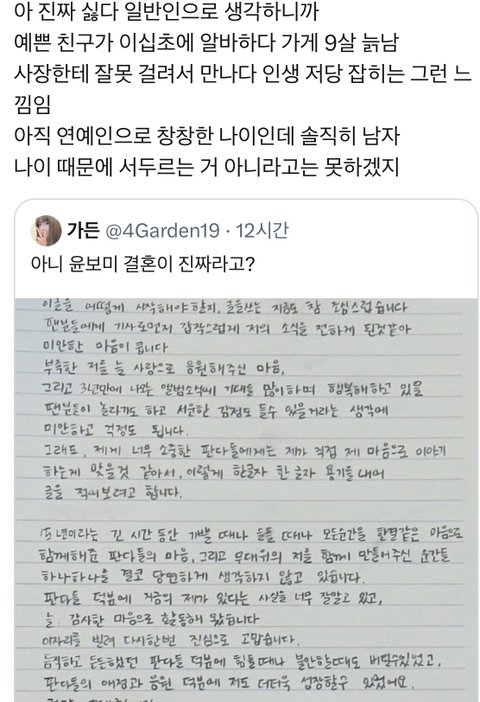 아 진짜 싫다 일반인으로 생각하니까
예쁜 친구가 이십초에 알바하다 가게 9살 늙남
사장한테 잘못 걸려서 만나다 인생 저당 잡히는 그런 느
낌임
아직 연예인으로 창창한 나이인데 솔직히 남자
나이 때문에 서두르는 거 아니라고는 못하겠지
가든 @4Garden19 · 12시간
아니 윤보미 결혼이 진짜라고?
이글을 어떻게 시작해야할지, 글을쓰는 지금도 참 조심스럽습니다
팬분들에게 기사로먼저 갑작스럽게 저의 소식을 전하게 된것같아
미안한 마음이 큽니다
부족한 저를 늘 사랑으로 응원해주신 마음,
그리고 3년만에 나오는 앨범소식에 기대를 많이하며 행복해하고 있을
팬분들이 놀라기도 하고 서운한 감정도 들수 있을거라는 생각에
미안하고 걱정도 됩니다.
그래도, 제게 너무 소중한 판다들에게는 제가 직접 제 마음으로 이야기
하는게 맞을것 같아서, 이렇게 한글자 한 글자 용기를 내어
글을 적어보려고 합니다.
15년이라는 긴 시간 동안 기쁠 때나 슬플 때나 모든순간을 한결같은 마음으로
함께해준 판다들의 마음, 그리고 무대위의 저를 함께 만들어주신 순간들
하나하나를 결코 당연하게 생각하지 않고 있습니다.
판다들 덕분에 지금의 제가 있다는 사실을 너무 잘알고 있고,
늘 감사한 마음으로 활동해 왔습니다
이자리를 빌려 다시한번 진심으로 고맙습니다.
듬직하고 든든했던 판다들 덕분에 힘들때나 불안할때도 버틸수있었고,
판다들의 애정과 응원 덕분에 저도 더더욱 성장할수 있었어요.